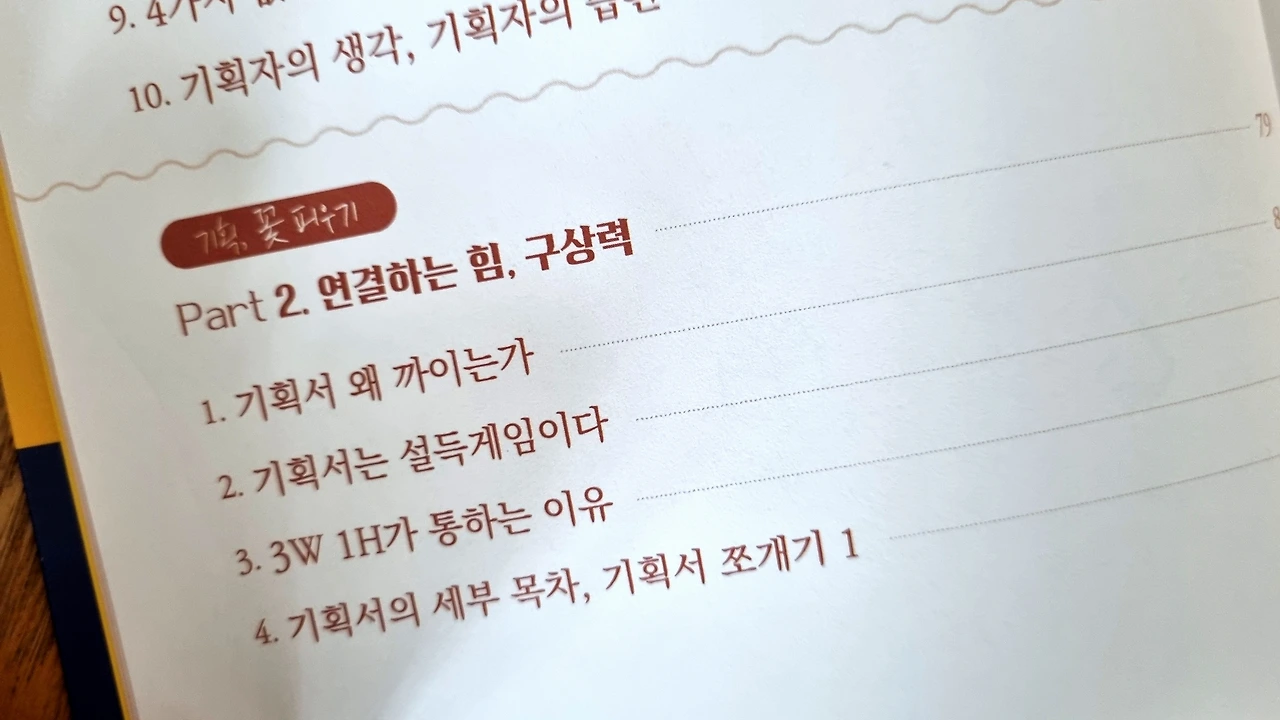 9. 4가지
10. 기획자의 생각, 기획자의 습관
79
기획, 꽃 피우기
Part 2. 연결하는 힘, 구상력
8
1. 기획서 왜 까이는가
2. 기획서는 설득게임이다
3. 3W 1H가 통하는 이유
4. 기획서의 세부 목차, 기획서 쪼개기 1